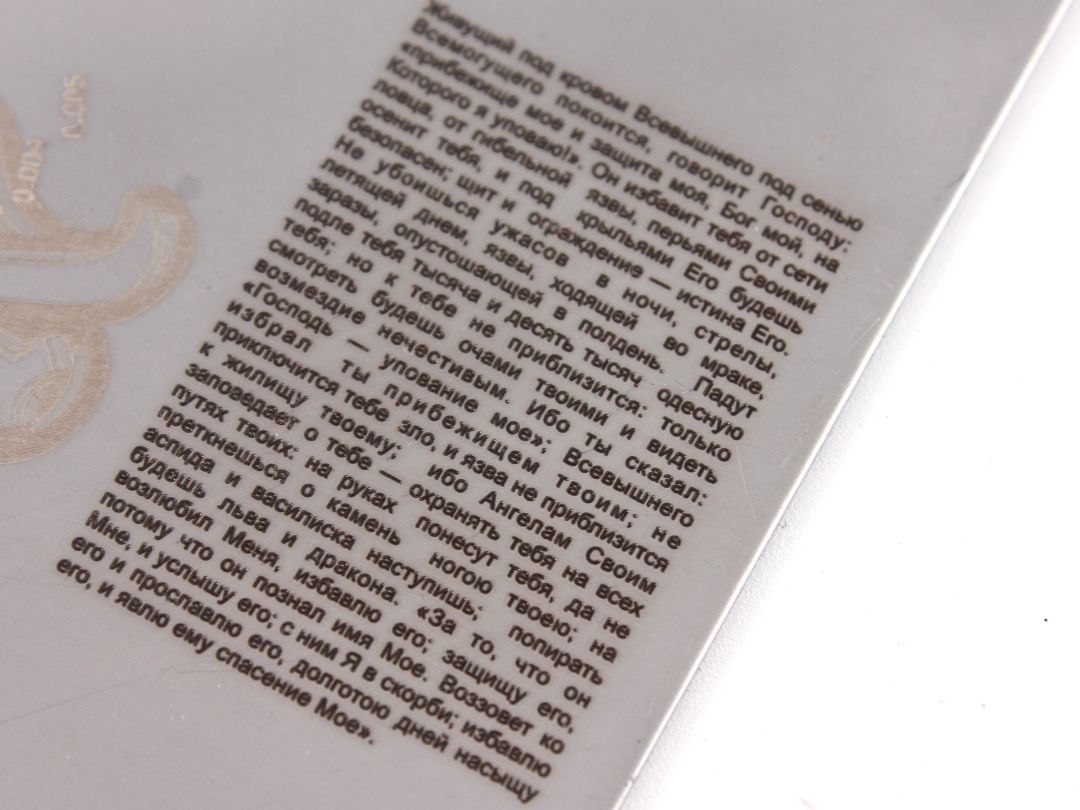 0.004
0.005
Живущий под кровом Всевышнего под сенью
Всемогущего покоится, говорит Господу:
«прибежище мое и защита моя, Бог мой, на
Которого я уповаю!». Он избавит тебя от сети
ловца, от гибельной язвы, перьями Своими
осенит тебя, и под крыльями Его будешь
безопасен; щит и ограждение — истина Его.
Не убоишься ужасов в ночи, стрелы,
летящей днем, язвы, ходящей во мраке,
заразы, опустошающей в полдень. Падут
подле тебя тысяча и десять тысяч одесную
тебя; но к тебе не приблизится: только
смотреть будешь очами твоими и видеть
возмездие нечестивым. Ибо ты сказал:
«Господь — упование мое»; Всевышнего
избрал ты прибежищем твоим; не
приключится тебе зло, и язва не приблизится
к жилищу твоему; ибо Ангелам Своим
заповедает о тебе — охранять тебя на всех
путях твоих: на руках понесут тебя, да не
преткнешься о камень ногою твоею; на
аспида и василиска наступишь; попирать
будешь льва и дракона. «За то, что он
возлюбил Меня, избавлю его; защищу его,
потому что он познал имя Мое. Воззовет ко
Мне, и услышу его; с ним Я в скорби; избавлю
его и прославлю его, долготою дней насыщу
его, и явлю ему спасение Мое».